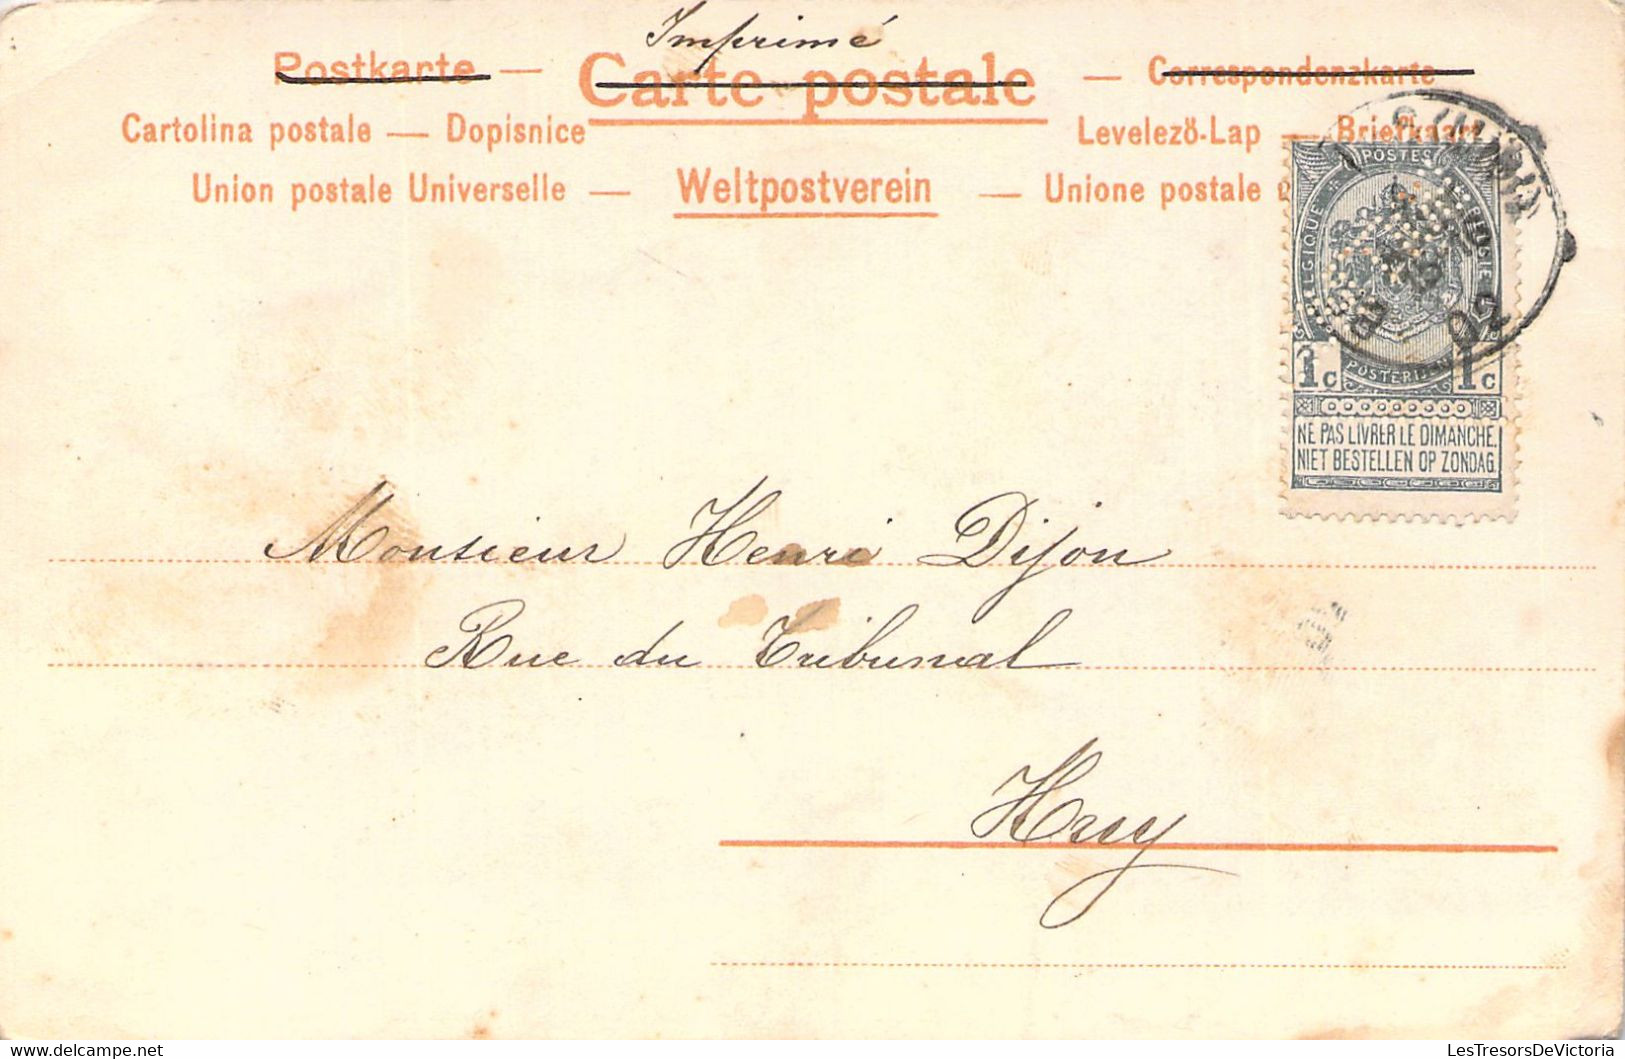 Imprimé
Postkarte — Carte postale — Correspondenzkarte
Cartolina postale — Dopisnice Levelező-Lap — Briefkaart
Union postale Universelle — Weltpostverein — Unione postale
POSTES
BELGIQUE BELGIE
02
1c 1c
POSTERIJEN
NE PAS LIVRER LE DIMANCHE.
NIET BESTELLEN OP ZONDAG.
Monsieur Henri Dijon
Rue du Tribunal
Huy
LesTresorsDeVictoria